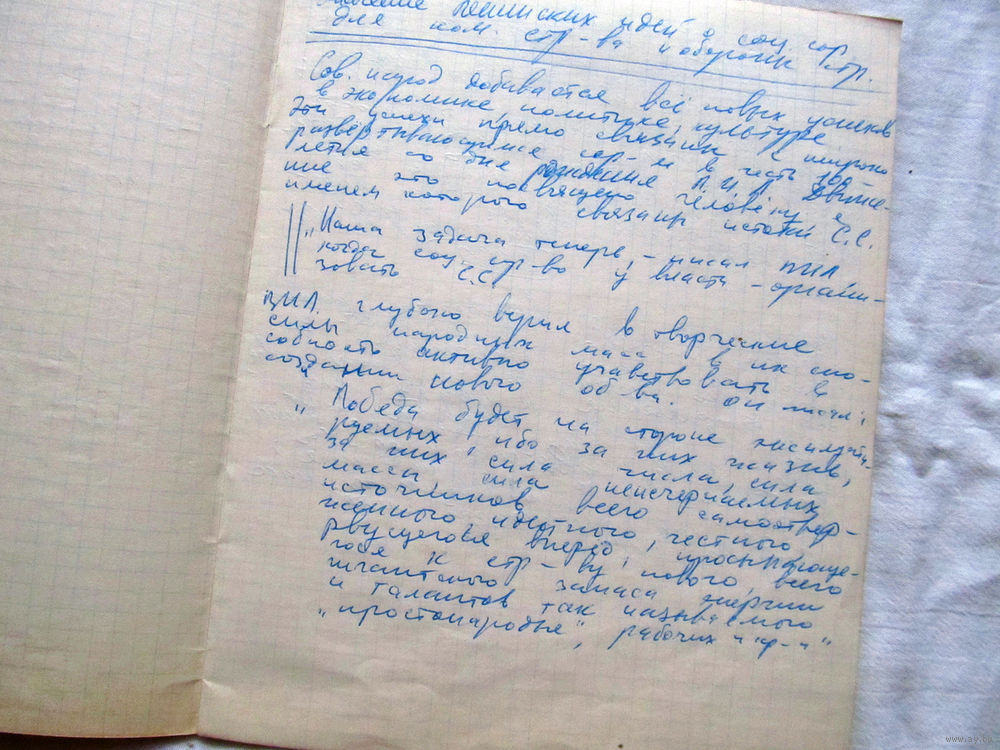 значение ленинских идей о соц. сор.
для ком. стр-ва и обороны стр.
Сов. народ добивается всё новых успехов
в экономике, политике, культуре
Эти успехи прямо связаны с широко
развёртывающимся сор-м в честь 100-
летия со дня рождения В.И.Л. Движе-
ние это посвящено человеку с
именем которого связаны истоки С.С.
„Наша задача теперь, - писал
когда соц. пр-во у власти - органи-
зовать С.С.
ВИЛ. глубоко верил в творческие
силы народных масс в их спо-
собность активно участвовать в
создании нового об-ва. Он писал:
„Победа будет на стороне эксплуати-
руемых, ибо за них жизнь,
за них сила числа, сила
массы, сила неисчерпаемых
источников всего самоотвер-
женного, идейного, честного,
рвущегося вперёд, просыпающе-
гося к стр-ву нового, всего
гигантского запаса энергии
и талантов так называемого
„простонародья", рабочих и кр-н"
www.ay.by